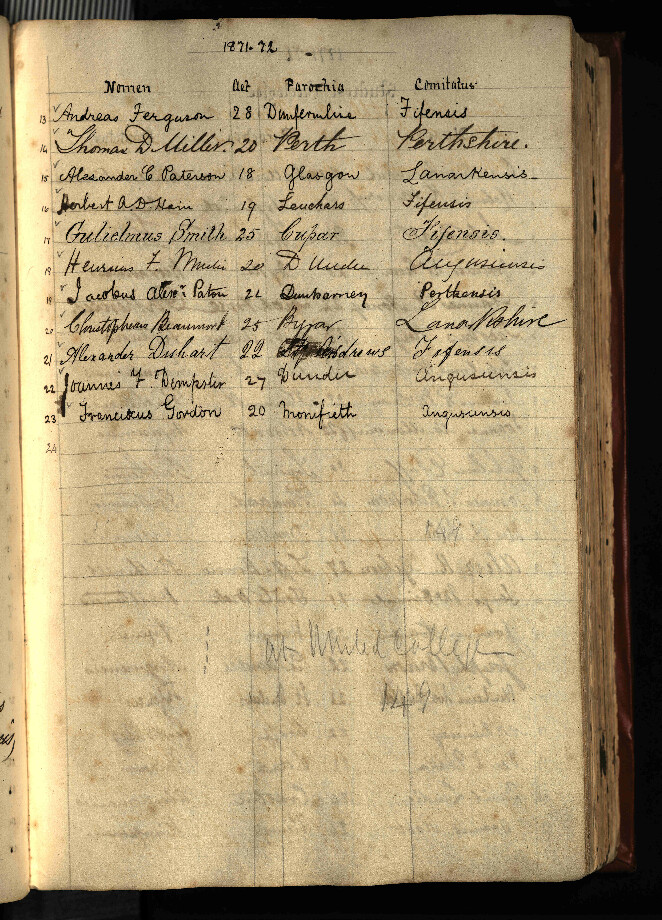 1871-72
Nomen Aet Parochia Comitatus
13 Andreas Ferguson 28 Dunfermline Fifensis
14 Thomas D. Miller. 20 Perth Perthshire.
15 Alexander C Paterson 18 Glasgow Lanarkensis
16 Herbert A.D. 19 Leuchars Fifensis
17 Gulielmus Smith 25 Cupar Fifensis.
18 Henricus F. 20 Dundee Angusiensis
19 Jacobus Alexr Paton 21 Dunbarney Perthensis
20 Christopherus Beaumont 25 Biggar Lanarkshire
21 Alexander Duhart 22 St Andrews Fifensis
22 Joannes F. Dempster 27 Dundee Angusiensis
23 Franciscus Gordon 20 Monifieth Angusiensis
24
149
at United College
149